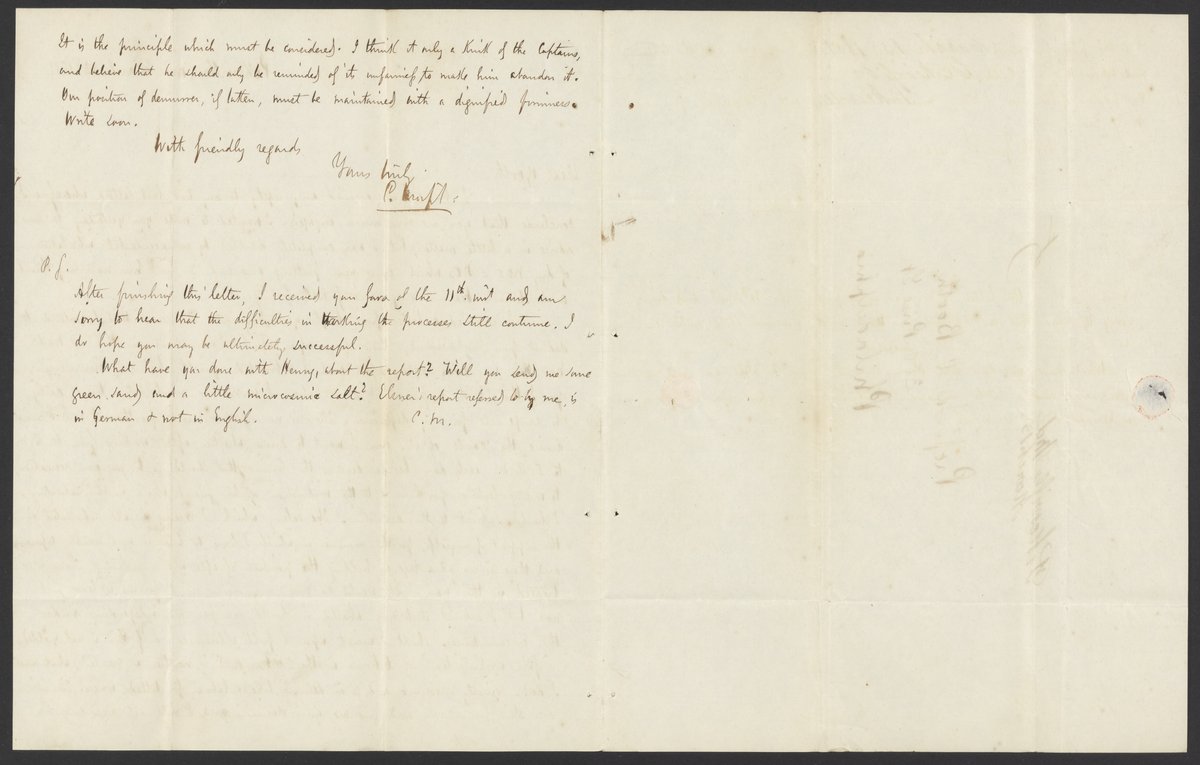 It is the principle which must be considered. I think it only a kink of the Captains,
and believe that he should only be reminded of its unfairness, to make him abandon it.
Our position of demurrer, if taken, must be maintained with a dignified firmness.
Write soon.
With friendly regards
Yours truly
C.
P.S.
After finishing this letter, I received your favor of the 11th inst and am
sorry to hear that the difficulties in working the processes still continue. I
do hope you may be ultimately successful.
What have you done with Henry, about the report? Will you send me some
green sand and a little microcosmic salt? report referred to by me, is
in German & not in English.
C. M.